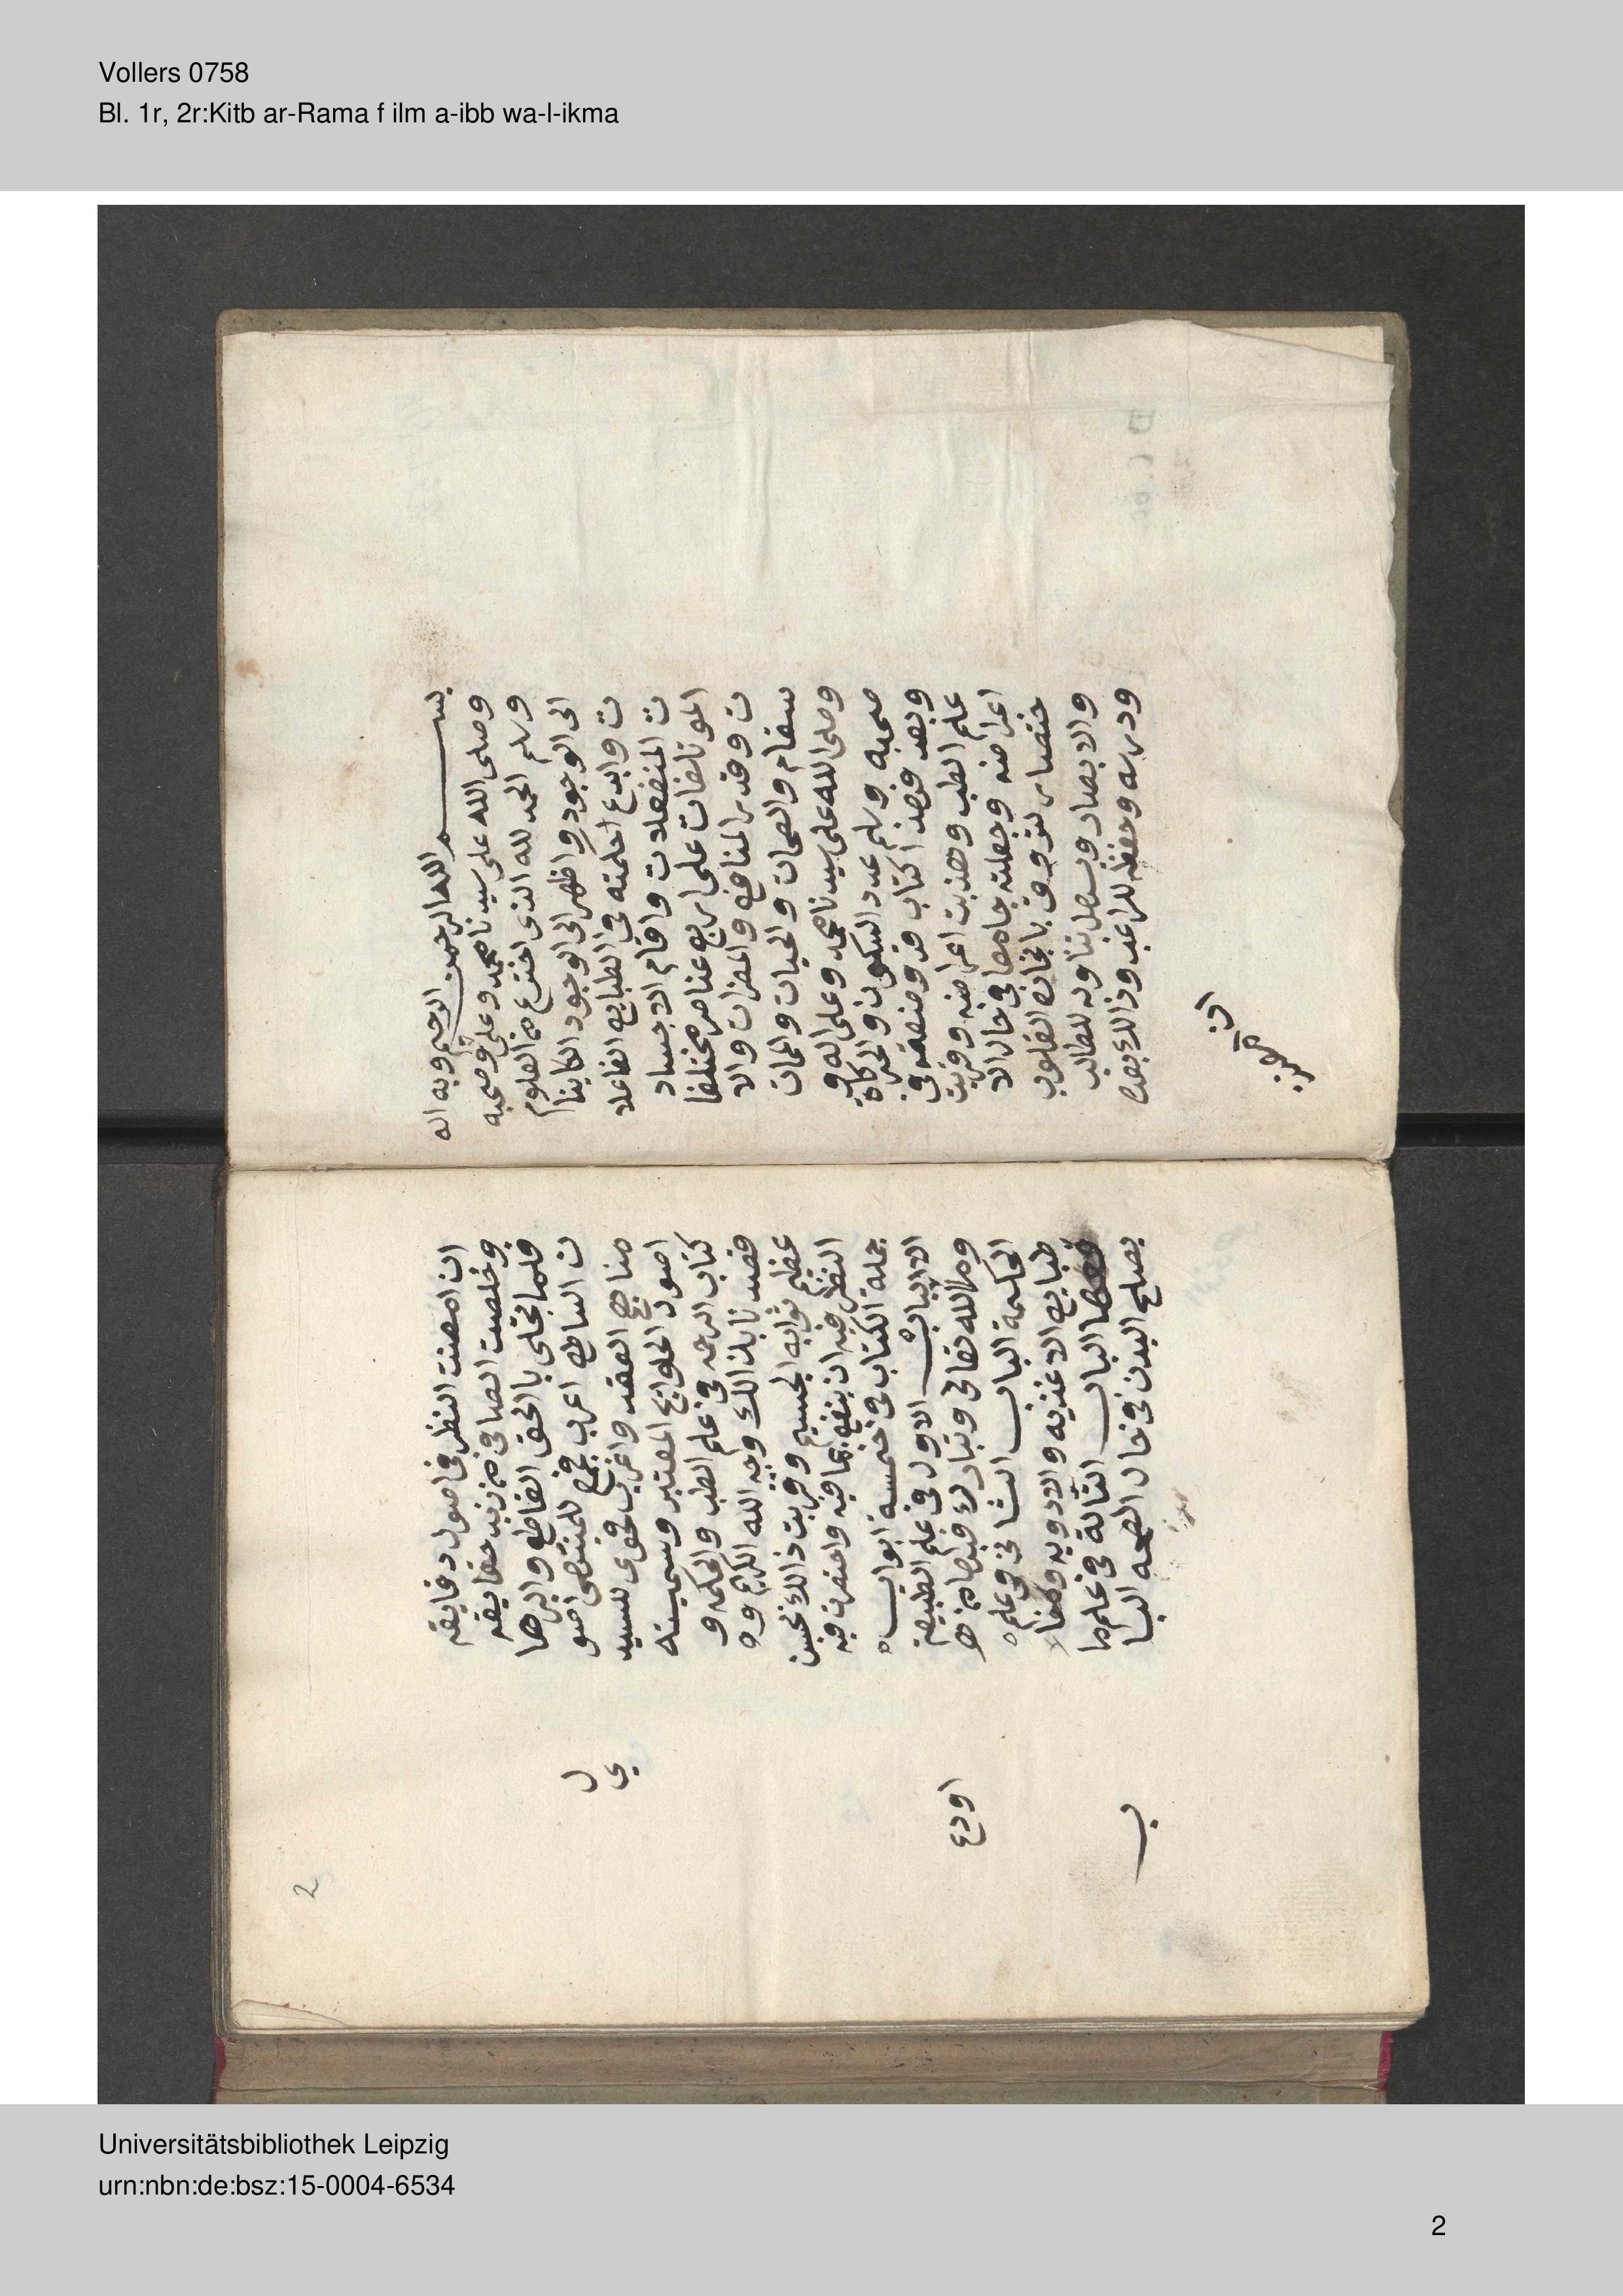 Vollers 0758
Bl. 1r, 2r:Kitb ar-Rama f ilm a-ibb wa-l-ikma
بسم الله الرحمن الرحيم وبه الـه
وصلى الله على سيدنا محمد وعلى وصحبه
وسلم الحمد لله الذى اخترع من العلوم
الى الوجود واظهر الى الوجود الكاينا
ت وابدع احلمته فى الطبايع الفاعلا
ت المنفعلات واقام الاجساد
الموتالفات على اربع عناصر مختلفا
ت وقدر المنافع والمضرات والا
سقام والصحات والحيات والممات
وصلى الله على سيدنا محمد وعلى اله و
صحبه وسلم عدد السكون والحركاة
وبعد فهذا كتاب قد وضعته فى
علم الطب وهذبت اعراضه وقربت
اغراضه وجعلته جامعا فى حال الا
ختصار لتروق بانجازه القلوب
والابصار ويسهل تناوله للطالب
ودرسه وحفظه للراغب وذالك بعد
ان امعنت النظر فى اصول دقايقه
وخلصت الصافى من زبد حقايقه
فلما تجلى بالحق القاطع والبرها
ن الساطع اعرب فجمع للمنتهى اصو
ل
مناهج العقد واغرب فحوى للسيد
ي
اصول الحلوايج المعتبر وسميته
كتاب الرحمه فى علم الطب والحكمه و
قصدنا بذالك وجه الله الكريم و
عظيم ثوابه الجسيم وقربت ذالك لحسن
النظر فيه ان ينفع بما فيه واختصرت فيه
جملة الكتاب فى خمسة ابواب
الاالباب الاول فى علم الطبيعة
وما الله تعالى وتبارك فيها من
اودع
الحكمة الباب الثانى فى علم
طبايع الاغذيه والادويه ومنفا
الباب الثالة فى علم ما
يصلح البدن فى حال الصحه البا
ب
2
Universitätsbibliothek Leipzig
urn:nbn:de:bsz:15-0004-6534
2